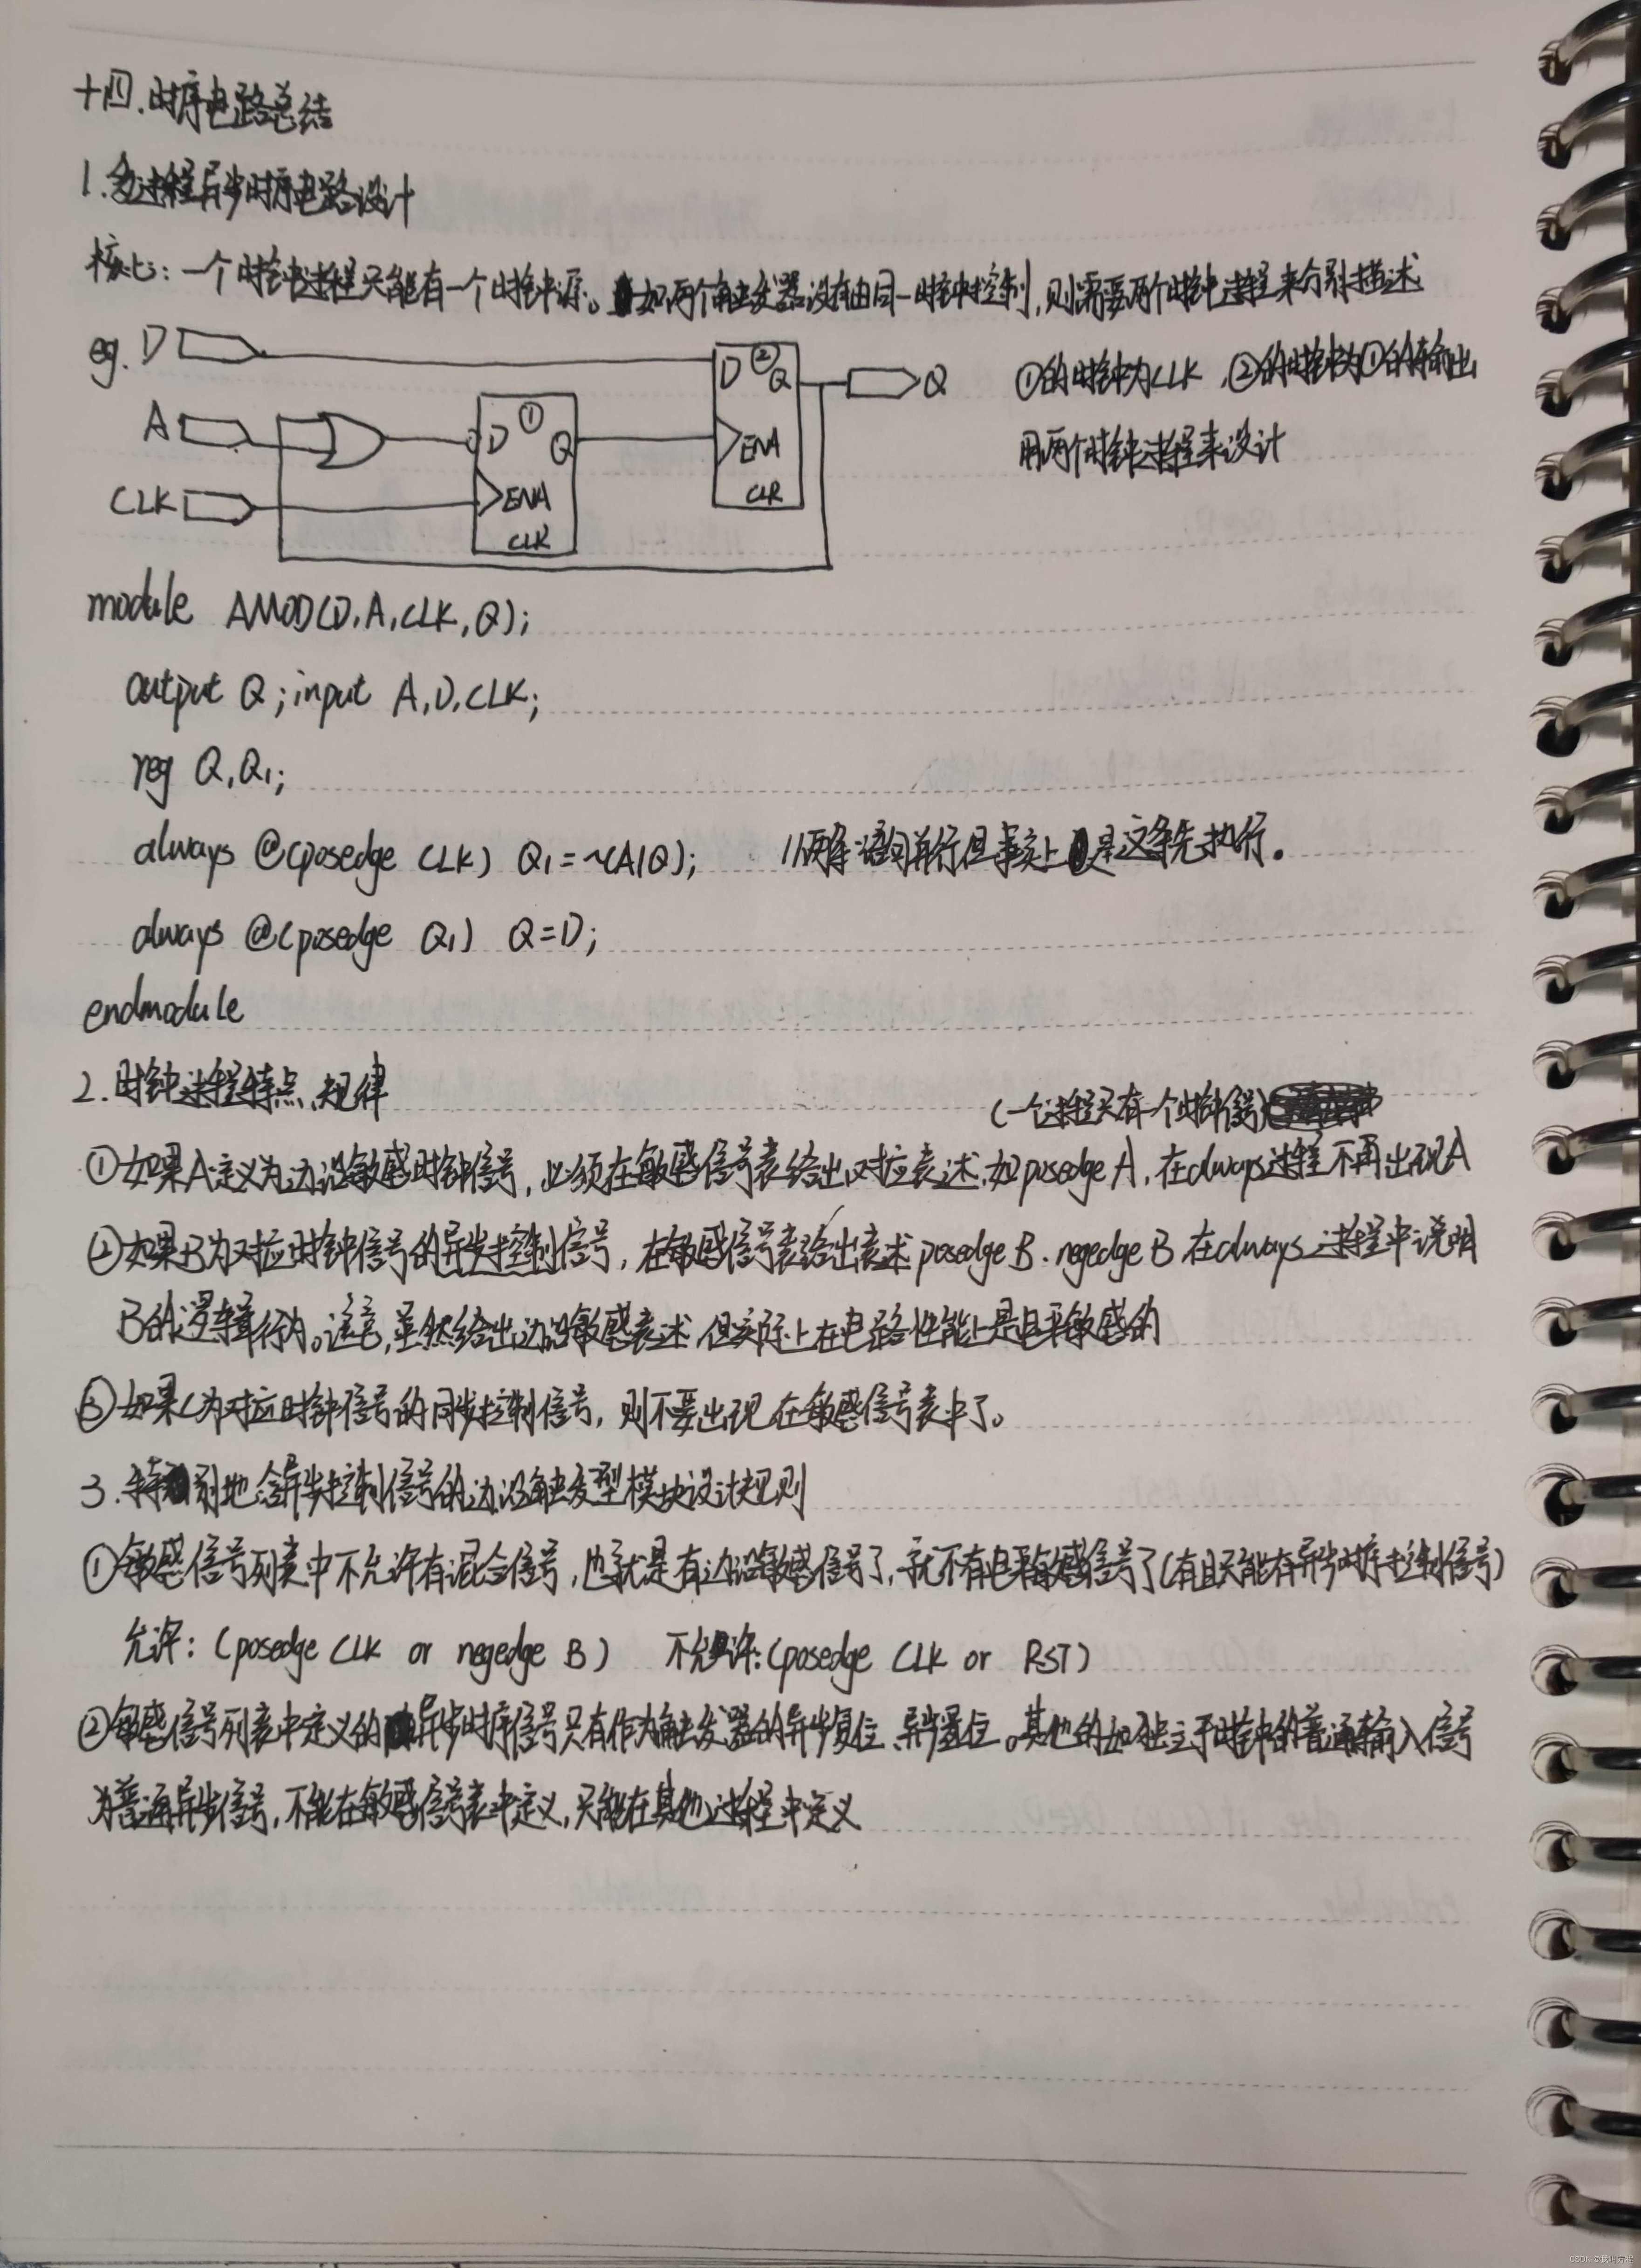 十四.时序电路总结
1.多过程异步时序电路设计
核心：一个时钟过程只能有一个时钟源。如两个触发器没有由同一时钟控制,则需要两个时钟过程来分别描述
eg. D D ② Q Q ①的时钟为CLK,②的时钟为①的输出
A D ① Q ENA 用两个时钟过程来设计
CLK ENA CLR
CLR
module AMOD(D,A,CLK,Q);
output Q;input A,D,CLK;
reg Q,Q1;
always @(posedge CLK) Q1=~(A|Q); //两条语句并行但事实上是这条先执行。
always @(posedge Q1) Q=D;
endmodule
2.时钟过程特点、规律
(一个过程只有一个时钟信号)
①如果A定义为边沿敏感时钟信号,必须在敏感信号表给出对应表述,如posedge A,在always过程不再出现A
②如果B为对应时钟信号的异步控制信号,在敏感信号表给出表述 posedge B.negedge B 在always过程中说明
B的逻辑行为。注意,虽然给出边沿敏感表述,但实际上在电路性能上是电平敏感的
③如果C为对应时钟信号的同步控制信号,则不要出现在敏感信号表中了。
3.特别地含异步控制信号的边沿触发型模块设计规则
①敏感信号列表中不允许有混合信号,也就是有边沿敏感信号了,就不有电平敏感信号了(有且只能有异步时序控制信号)
允许:(posedge CLK or negedge B) 不允许:(posedge CLK or RST)
②敏感信号列表中定义的异步时序信号只有作为触发器的异步复位、异步置位。其他的如独立于时钟的普通输入信号
为普通异步信号,不能在敏感信号表中定义,只能在其他过程中定义
CSDN